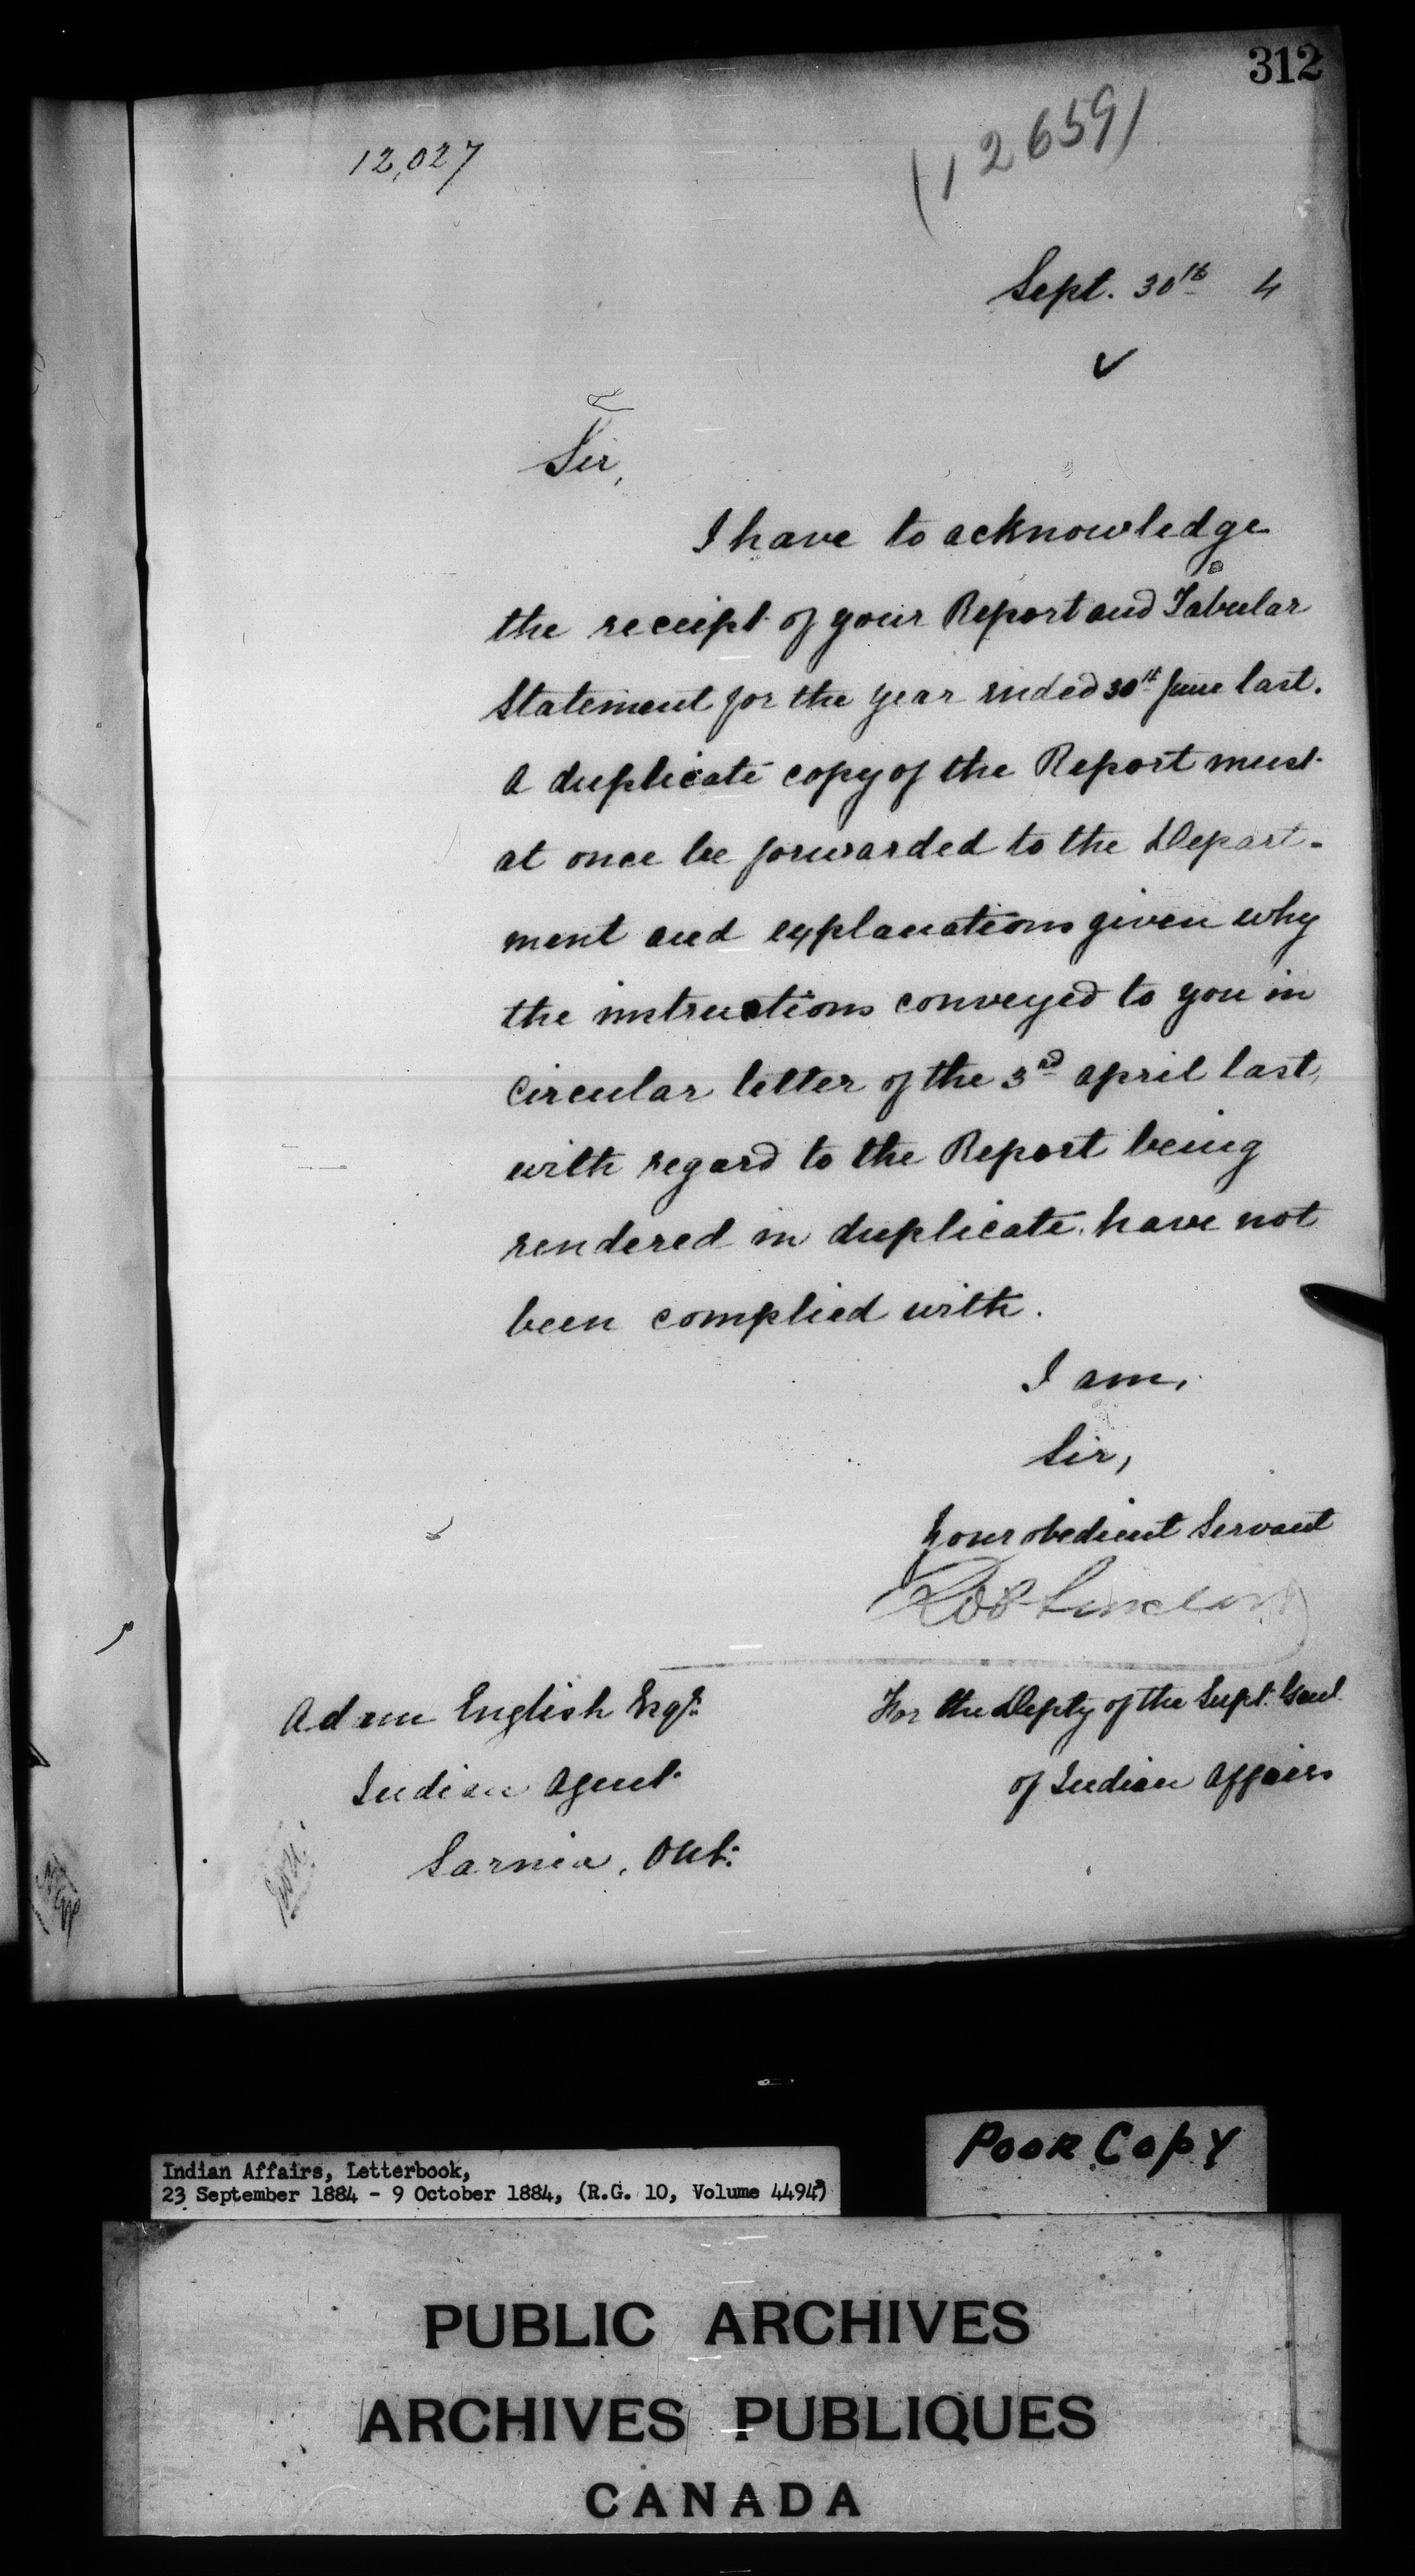 312
12,027
(12659)
Sept. 30th 4
Sir,
I have to acknowledge
the receipt of your Report and Tabular
Statement for the year ended 30th June last.
A duplicate copy of the Report must
at once be forwarded to the Depart-
ment and explanations given why
the instructions conveyed to you in
Circular letter of the 3rd April last,
with regard to the Report being
rendered in duplicate, have not
been complied with.
I am,
Sir,
Your obedient Servant
Sinclair
Adam English Esqr:
For the Depty of the Supt. Genl.
Indian Agent
of Indian Affairs
Sarnia, Ont:
Poor Copy
Indian Affairs, Letterbook,
23 September 1884 - 9 October 1884, (R.G. 10, Volume 4494)
PUBLIC ARCHIVES
ARCHIVES PUBLIQUES
CANADA